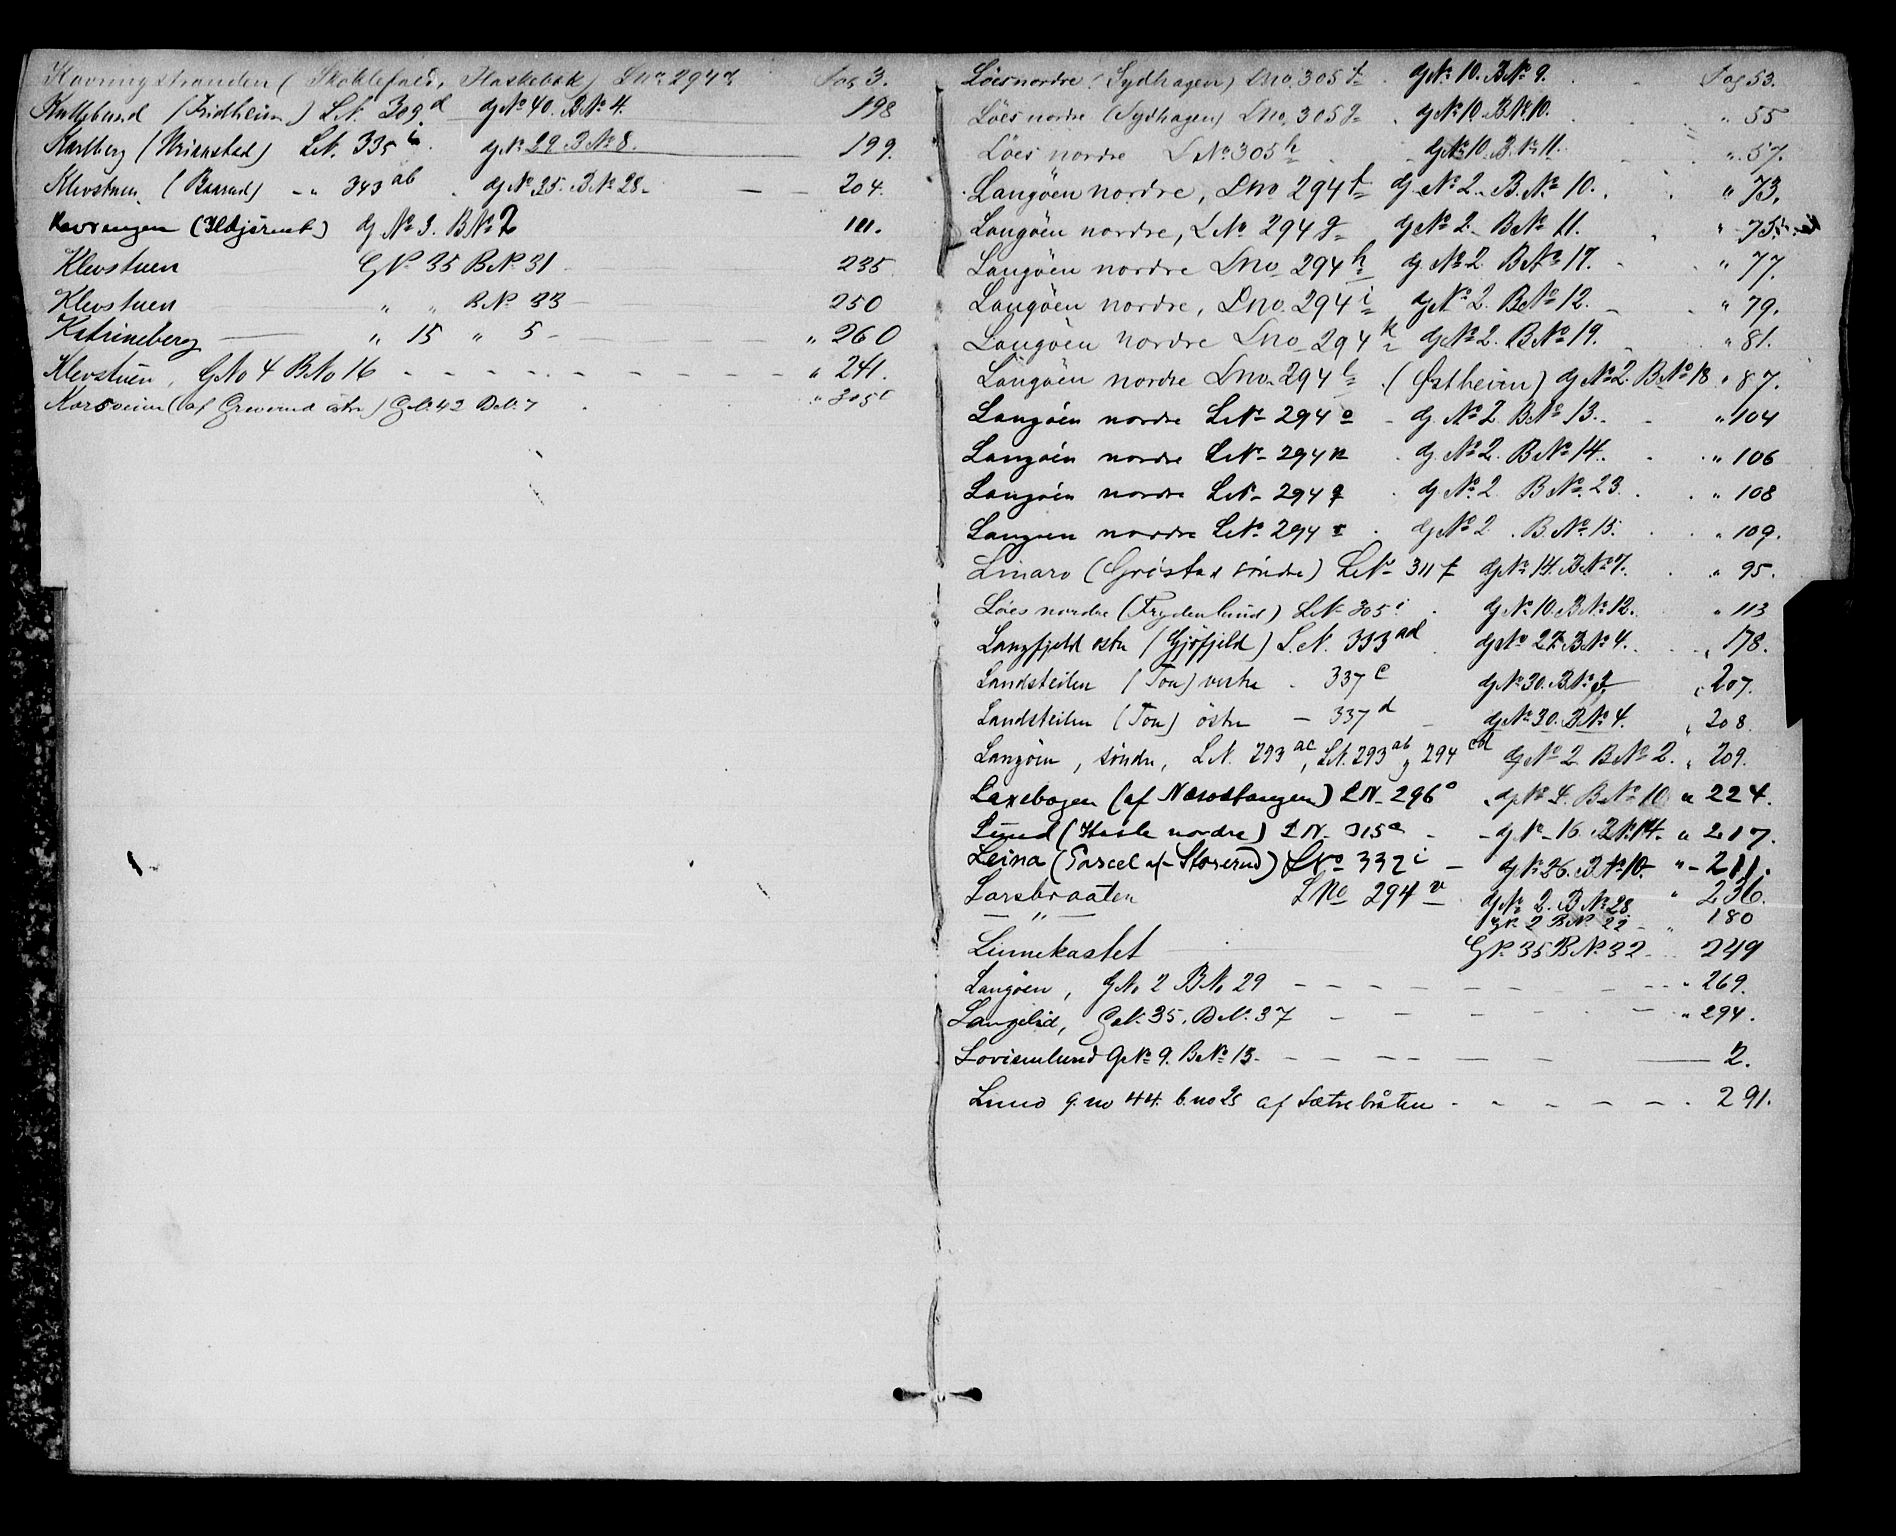 Kavringstranden (Skoklefald, Flaskebæk) Lno 294 Pag 3.
Kallebund (Fridheim) L.N. 309 d GNo 40. BNo 4. 198
Karlberg L.N. 335 i GNo 29. BNo 8. 199.
Klevstuen (Baarud) - " 343 ab GNo 35. BNo 28. 204.
Kavringen GNo 3. BNo 2 111.
Klevstuen GNo 35 BNo 31 235
Klevstuen " " BNo 33 250
Katrineberg " 15 " 5 - " 260
Klevstuen, GNo 4 BNo 16 " 241.
(af Greverud østre) GNo. 42 BNo. 7 " 305
Löes nordre (Sydhagen) Lno. 305 f GNo 10. BNo 9. Pag 53.
Löes nordre (Sydhagen) Lno. 305 g GNo 10. BNo 10. " 55
Löes nordre LNo 305 h GNo 10. BNo 11. " 57.
Langöen nordre, Lno 294 f GNo 2. BNo 10. " 73.
Langöen nordre, LNo 294 g GNo 2. BNo 11. " 75.
Langöen nordre Lno 294 h GNo 2. BNo 17. " 77.
Langöen nordre, Lno. 294 i GNo 2. BNo 12. " 79.
Langöen nordre Lno 294 k GNo 2. BNo 19. " 81.
Langöen nordre Lno. 294 l (Østheim) GNo 2. BNo 18 " 87.
Langöen nordre LNo 294 o GNo 2. BNo 13. " 104
Langöen nordre LNo 294 n GNo 2. BNo 14. " 106
Langöen nordre LNo 294 q GNo 2. BNo 23. " 108
Langöen nordre LNo 294 r GNo 2. BNo 15. " 109.
Linaro (Gristad söndre) LNo 311 f GNo 14. BNo 7. " 95.
Löes nordre (Frydenlund) LN 305 i GNo 10. BNo 12. " 113
Langfjeld östre (Gjöfjeld) L.N. 333 ad GNo 27. BNo 4. " 178.
Landsteilen (Tou) vestre - 337 c GNo 30. BNo 3 " 207.
Landsteilen (Tou) östre - 337 d GNo 30. BNo 4. " 208.
Langöen, söndre, L.N. 293 ac, L.N. 293 ab, 294 cd GNo 2 BNo 2. " 209.
Laxebogen (af Næsdtangen) LN. 296 o GNo 4. BNo 10 " 224.
Lund (Hasle nordre) LN. 315 a - GNo 16. BNo 14. " 217.
Leina (Parcel af Storerud) LNo 332 i - GNo 26. BNo 10. " 211.
Larsbraaten Lno 294 v GNo 2. BNo 28 " 236.
— " — GNo 2 BNo 22 " 180
Linnekastet GNo 35 BNo 32 249
Langöen, GNo 2 BNo 29 " 269.
Langelid, GNo. 35. BNo. 37 " 294.
Lovisenlund GNo 9. BNo 13. 2.
Lund g.no 44. b.no 25 af Sætrebråten 291.